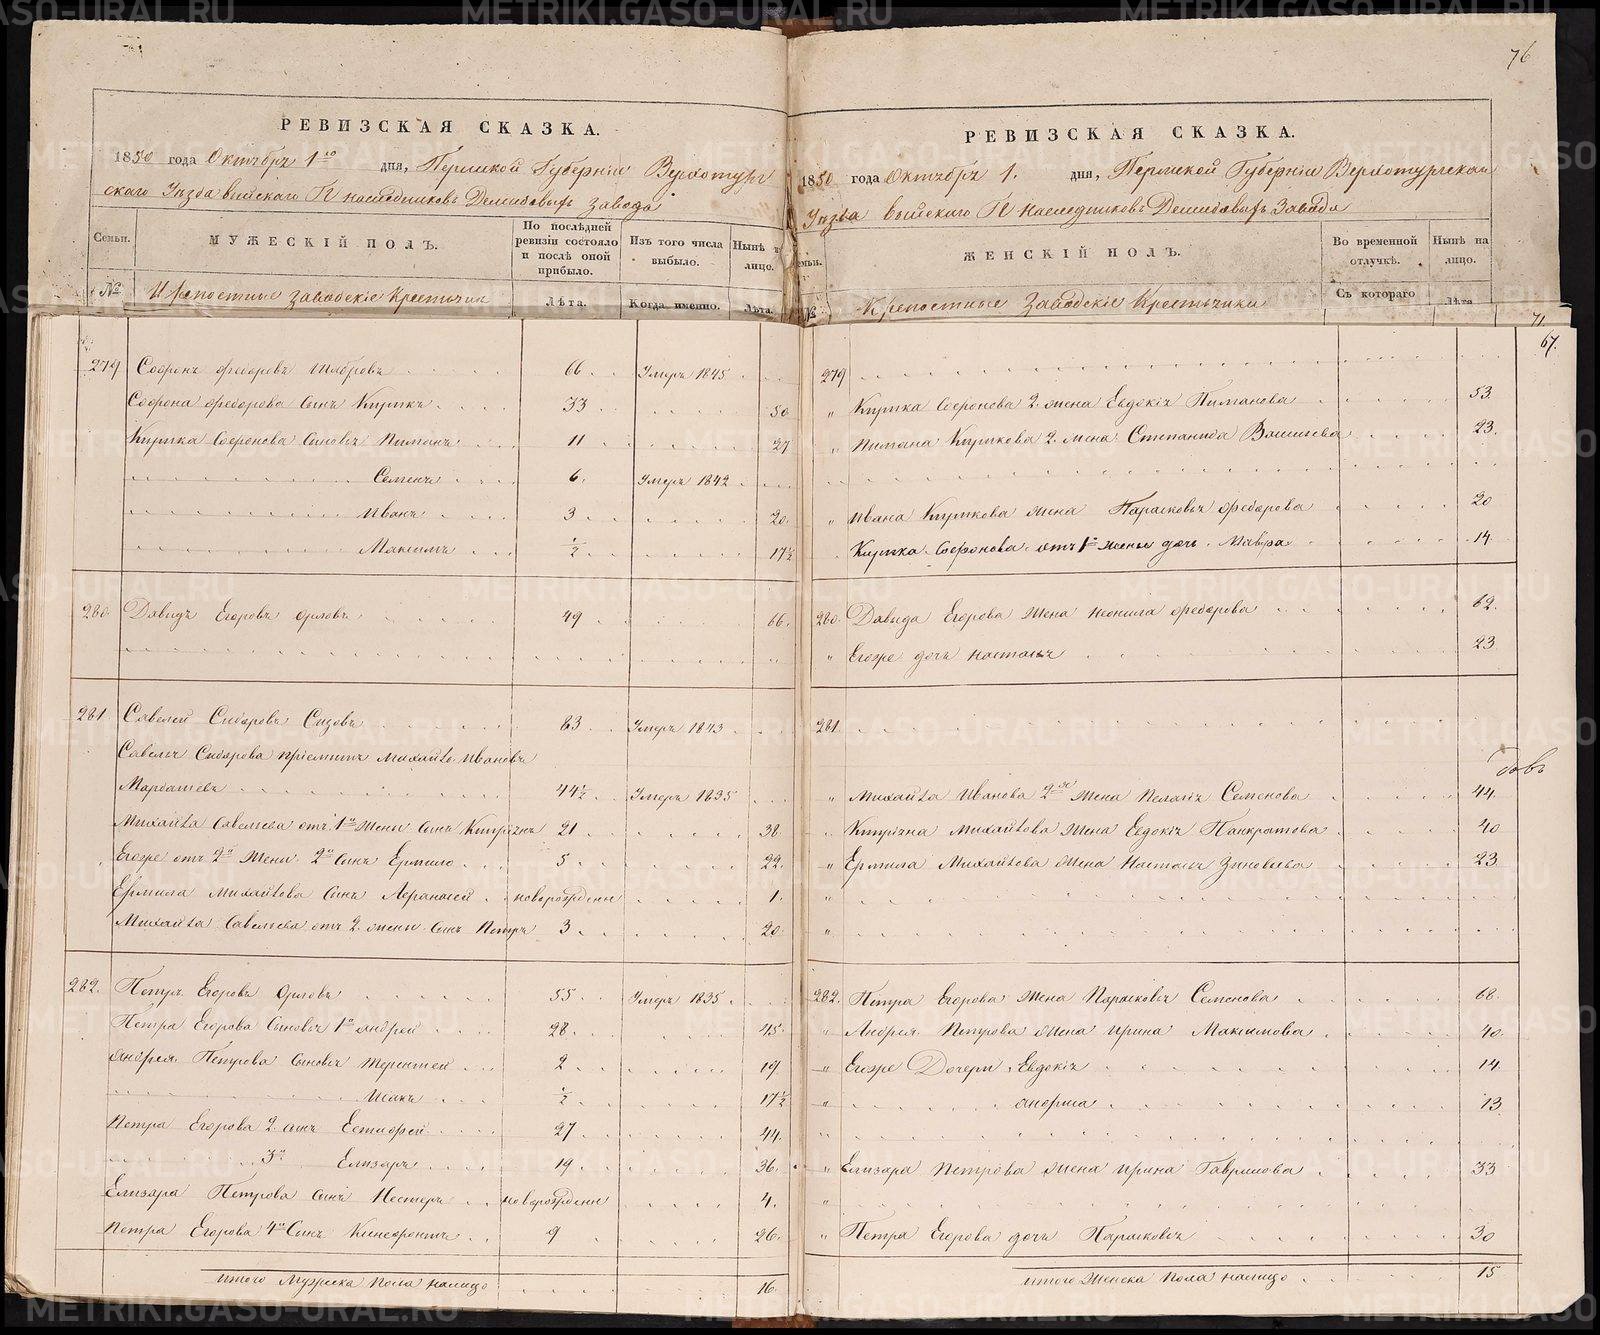 76
РЕВИЗСКАЯ СКАЗКА.
1850 года Октября 1го дня, Пермской Губернии Верхотур
скаго Уезда Выйскаго Гг. наследниковъ Демидовыхъ завода
Семьи. МУЖЕСКІЙ ПОЛЪ. По последней ревизіи состояло и после оной прибыло. Изъ того числа выбыло. Ныне на лицо.
№ Крепостные заводскіе Крестьяне Лета. Когда именно. Лета.
279 Софронъ Федоровъ 66 Умеръ 1845
Софрона Федорова Сынъ Кирикъ 33 50
Кирика Софронова Сыновья Пиманъ 11 27
Семенъ 6. Умеръ 1842
Иванъ 3 20.
Максимъ ½ 17½
280. Давыдъ Егоровъ Орловъ 49 66.
281 Савелей Сидоровъ Сизовъ 83 Умеръ 1843
Савелья Сидорова пріемышъ Михайло Ивановъ
44½ Умеръ 1835
Михайла Савельева отъ 1й жены Сынъ Кипріянъ 21 38
Егоже отъ 2й жены 2й Сынъ Ермило 5 22.
Ермила Михайлова Сынъ Афанасей новорожденъ 1.
Михайла Савельева отъ 2. жены Сынъ Петръ 3 20.
282. Петръ Егоровъ Орловъ 55 Умеръ 1835
Петра Егорова Сыновья 1й Андрей 28. 45.
Андрея Петрова Сыновья Терентей 2 19
Исакъ ½ 17½
Петра Егорова 2. сынъ Естифей 27 44.
3й Елизаръ 19 36.
Елизара Петрова Сынъ Нестеръ новорожденъ 4.
Петра Егорова 4й Сынъ Ксенофонтъ 9 26.
Итого Мужеска пола налицо 16.
РЕВИЗСКАЯ СКАЗКА.
1850 года Октября 1. дня, Пермской Губерніи Верхотурскаго
Уезда Выйскаго Гг. Наследниковъ Демидовыхъ Завода
Семьи. ЖЕНСКІЙ ПОЛЪ. Во временной отлучке. Ныне на лицо.
№ Крепостные Заводскіе Крестьянки Съ котораго Лета
71
67.
279
" Кирика Софронова 2. жена Евдокія Пиманова 53.
" Пимана Кирикова 2. жена Степанида Васильева 23.
" Ивана Кирикова жена Парасковья Федорова 20
Кирика Софронова отъ 1й жены дочь Мавра 14
280. Давыда Егорова жена Неонила Федорова 62.
" Егоже дочь Настасья 23
281.
" Михайла Иванова 2я жена Пелагія Семенова 44.
" Кипріяна Михайлова жена Евдокія Панкратова 40
" Ермила Михайлова жена Настасья Зиновьева 23
282. Петра Егорова жена Парасковья Семенова 68.
" Андрея Петрова жена Ирина Максимова 40.
" Егоже Дочери, Евдокія 14.
" 13.
" Елизара Петрова жена Ирина Гаврилова 33
" Петра Егорова дочь Парасковья 30
Итого Женска пола налицо 15
METRIKI.GASO-URAL.RU